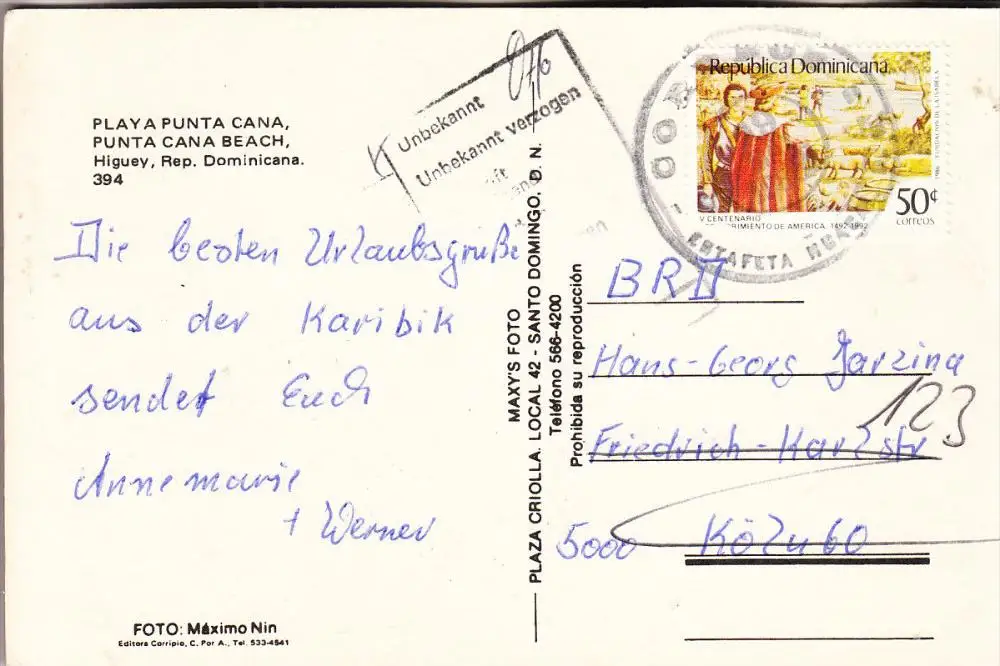 PLAYA PUNTA CANA,
PUNTA CANA BEACH,
Higuey, Rep. Dominicana.
394
Die besten Urlaubsgrüße
aus der Karibik
sendet Euch
Annemarie
+ Werner
FOTO: Máximo Nin
Editora Corripio, C. Por A., Tel. 533-4541
PLAZA CRIOLLA. LOCAL 42 - SANTO DOMINGO, D. N.
MAXY'S FOTO
Teléfono 566-4200
Prohibida su reproducción
Unbekannt
Unbekannt verzogen
República Dominicana
50¢
correos
V CENTENARIO
RIMIENTO DE AMERICA, 1492-1992
CORREOS
ESTAFETA
BRD
Hans-Georg Jarzina
123
Friedrich-Karl str
5000 Köln 60